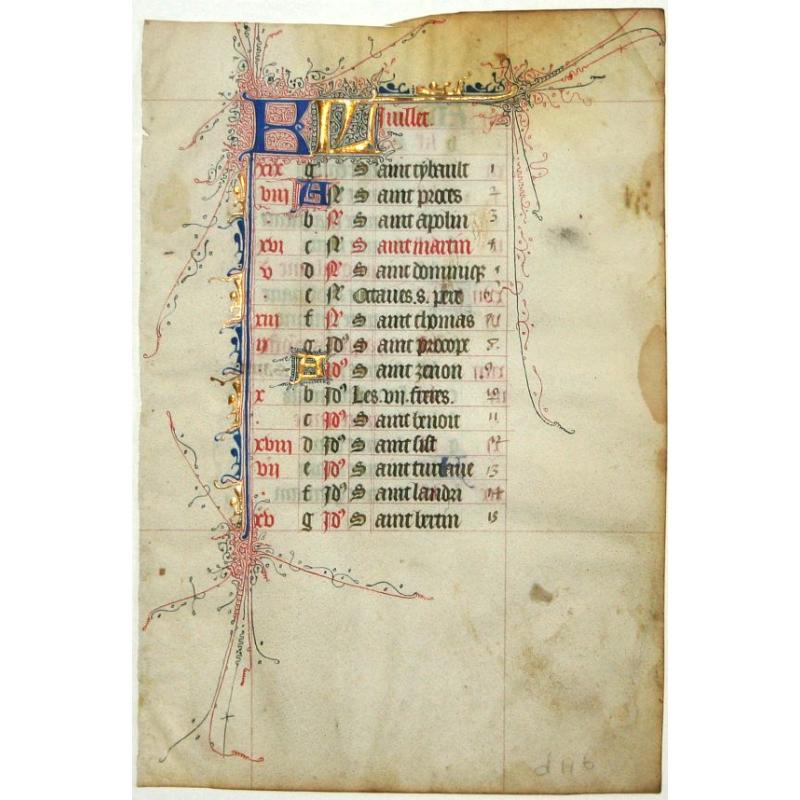 KL Juillet.
xix g Saint tybault 1
viii A N Saint proces 2
b N Saint apolin 3
xvi c N Saint martin 4
v d N Saint dominiq3
e N Octaues.s. pere 6
xiii f N Saint thomas
ii g Id9 Saint procope 8
A Id9 Saint zenon 9
x b Id9 Les.vii.freres. 10
c Id9 Saint benoit 11
xviii d Id9 Saint sist 12
vii e Id9 Saint 13
f Id9 Saint landri 14
xv g Id9 Saint bertin 15